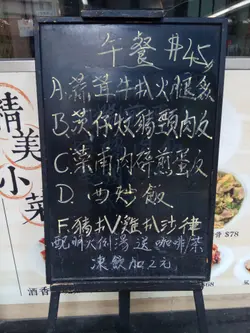 午餐 $45
A.蒜茸牛扒火腿多
B.茨仔炆豬頸肉反
C.菜甫肉碎煎蛋反
D. 西炒飯
F.豬扒/雞扒沙律
配明火例湯送咖啡茶
凍飲加2元
精美小菜
酒香
$78